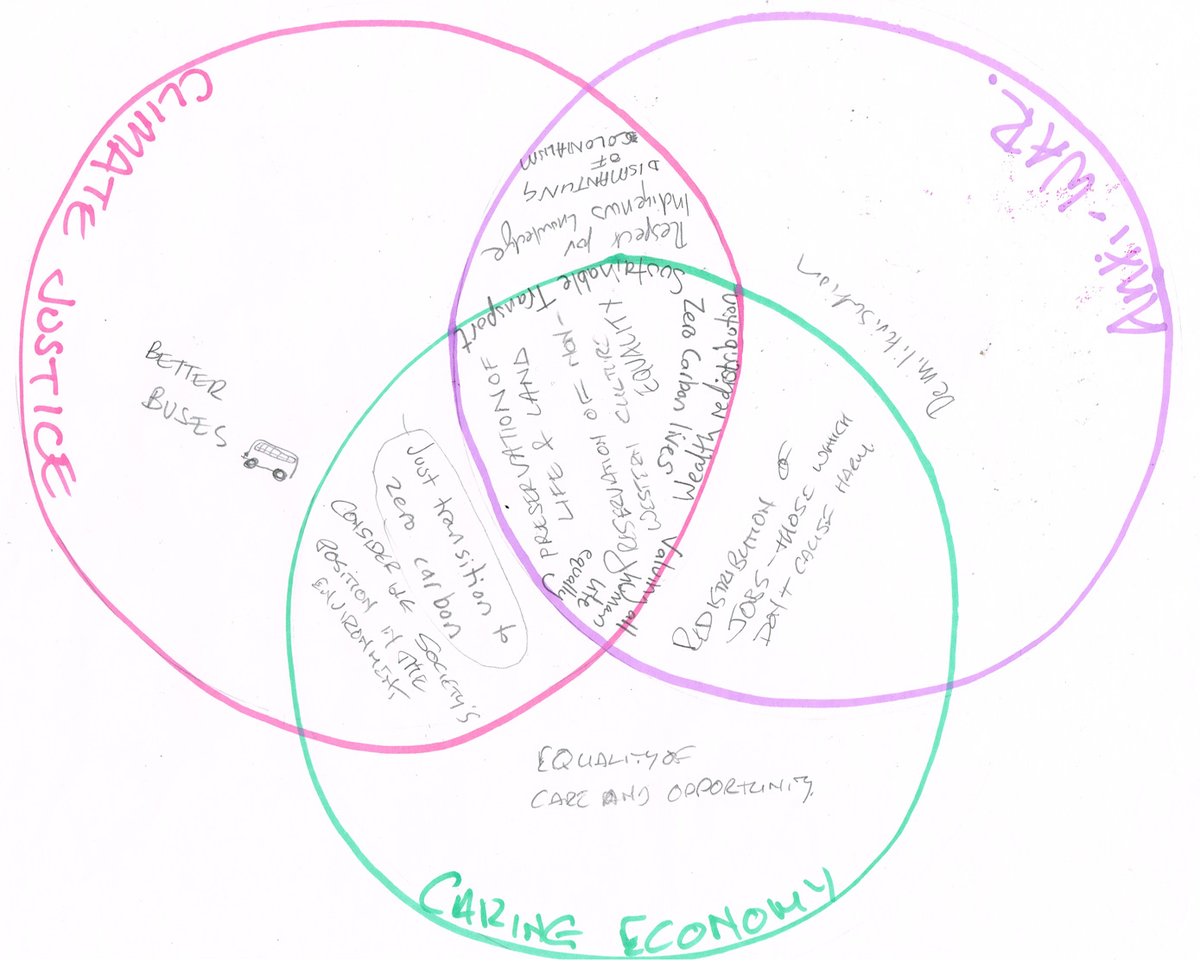 CLIMATE JUSTICE
ANTI-WAR.
CARING ECONOMY
BETTER
BUSES
DISMANTLING
OF
COLONIALISM
Respect for
Indigenus knowledge
Demilitirisation
Sustainable Transport
Zero Carbon lives
Wealth redistribution
PRESERVATION OF
LIFE & LAND
PRESERVATION OF NON-
WESTERN CULTURE
EQUALITY
Valuing all
human
life
equally
Just transition to
zero carbon
CONSIDER WE SOCIETY'S
POSITION IN THE
ENVIRONMENT
REDISTRIBUTION OF
JOBS - THOSE WHICH
DON'T CAUSE HARM
EQUALITY OF
CARE AND OPPORTUNITY